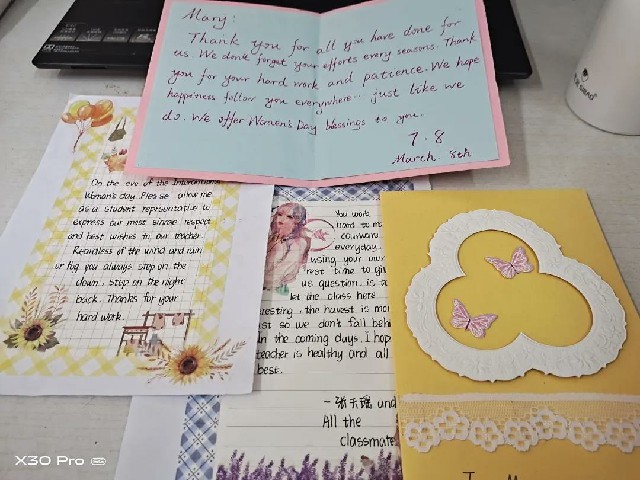 Mary:
Thank you for all you have done for
us. We don't forget your efforts every seasons. Thank
you for your hard work and patience. We hope
happiness follow you everywhere.. just like we
do. We offer Women's Day blessings to you.
7.8
March 8th
On the eve of the International
Woman's day. Please allow me
as a student representative to
express our most sincere respect
and best wishes to our teacher.
Regardless of the wind and rain
or fog you always step on the
dawn. step on the night
back. Thanks for your
hard work.
You work
hard to
everyday
using your own
rest time to give
us question. is
let the class here
the harvest is more
so we don't fail behind
in the coming days. I hope
teacher is healthy and all
best.
All the
classmates
X30 Pro